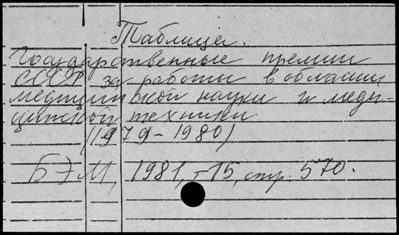 Таблица.
Государственные премии
СССР за работы в области
медицинской науки и меди-
цинской техники
(1979-1980)
БЭМ, 1981, т-15, стр. 570.